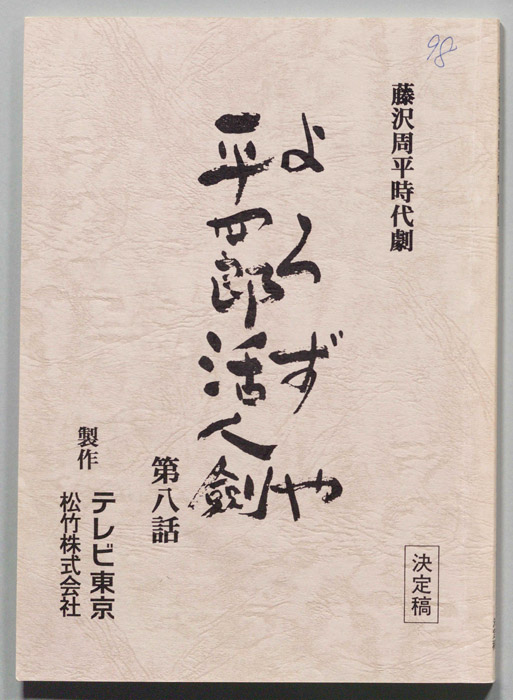 98
藤沢周平時代劇
よろずや
平四郎活人劍
第八話
製作
テレビ東京
松竹株式会社
決定稿